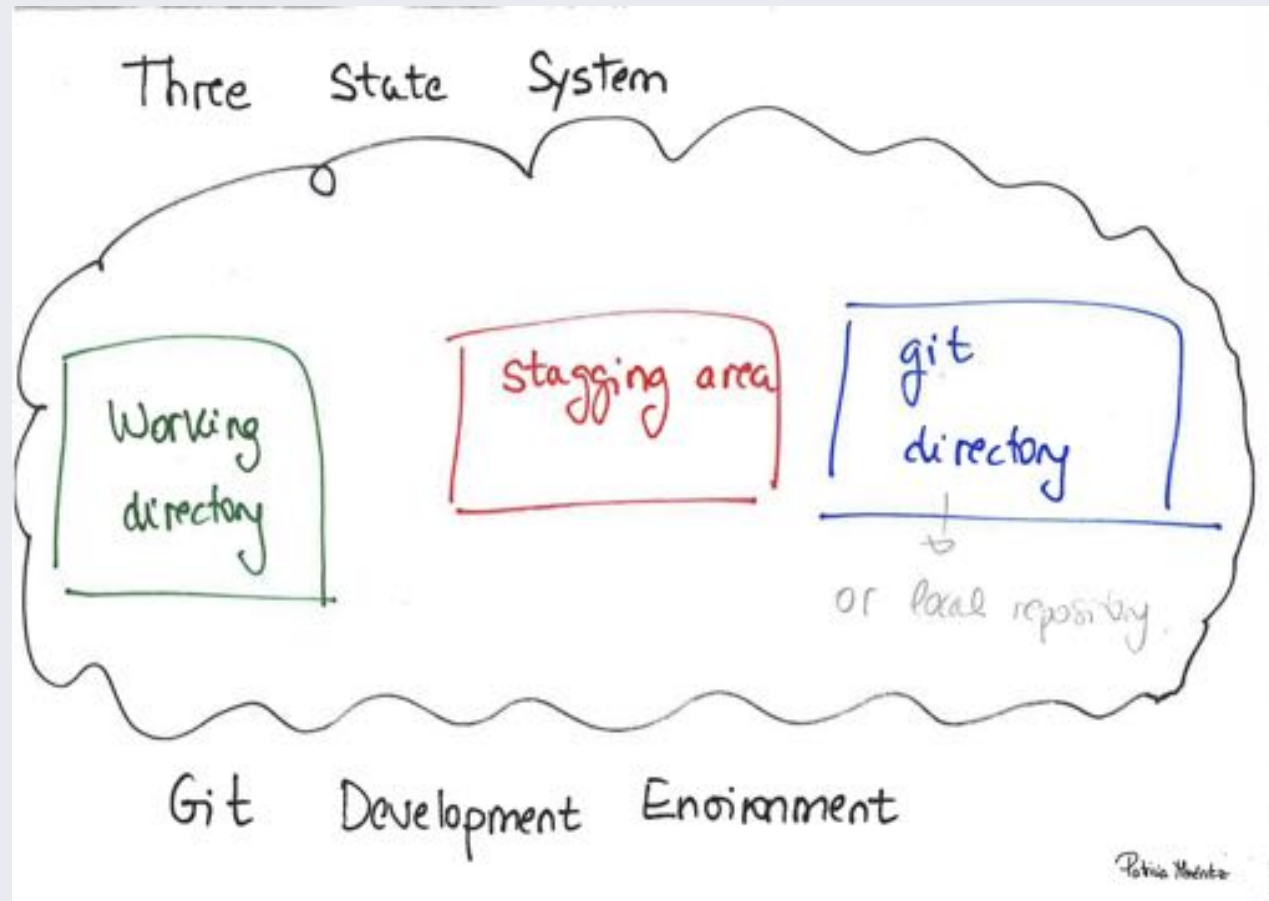 Three State System
Working
directory
stagging area
git
directory
or local repository.
Git Development Environment